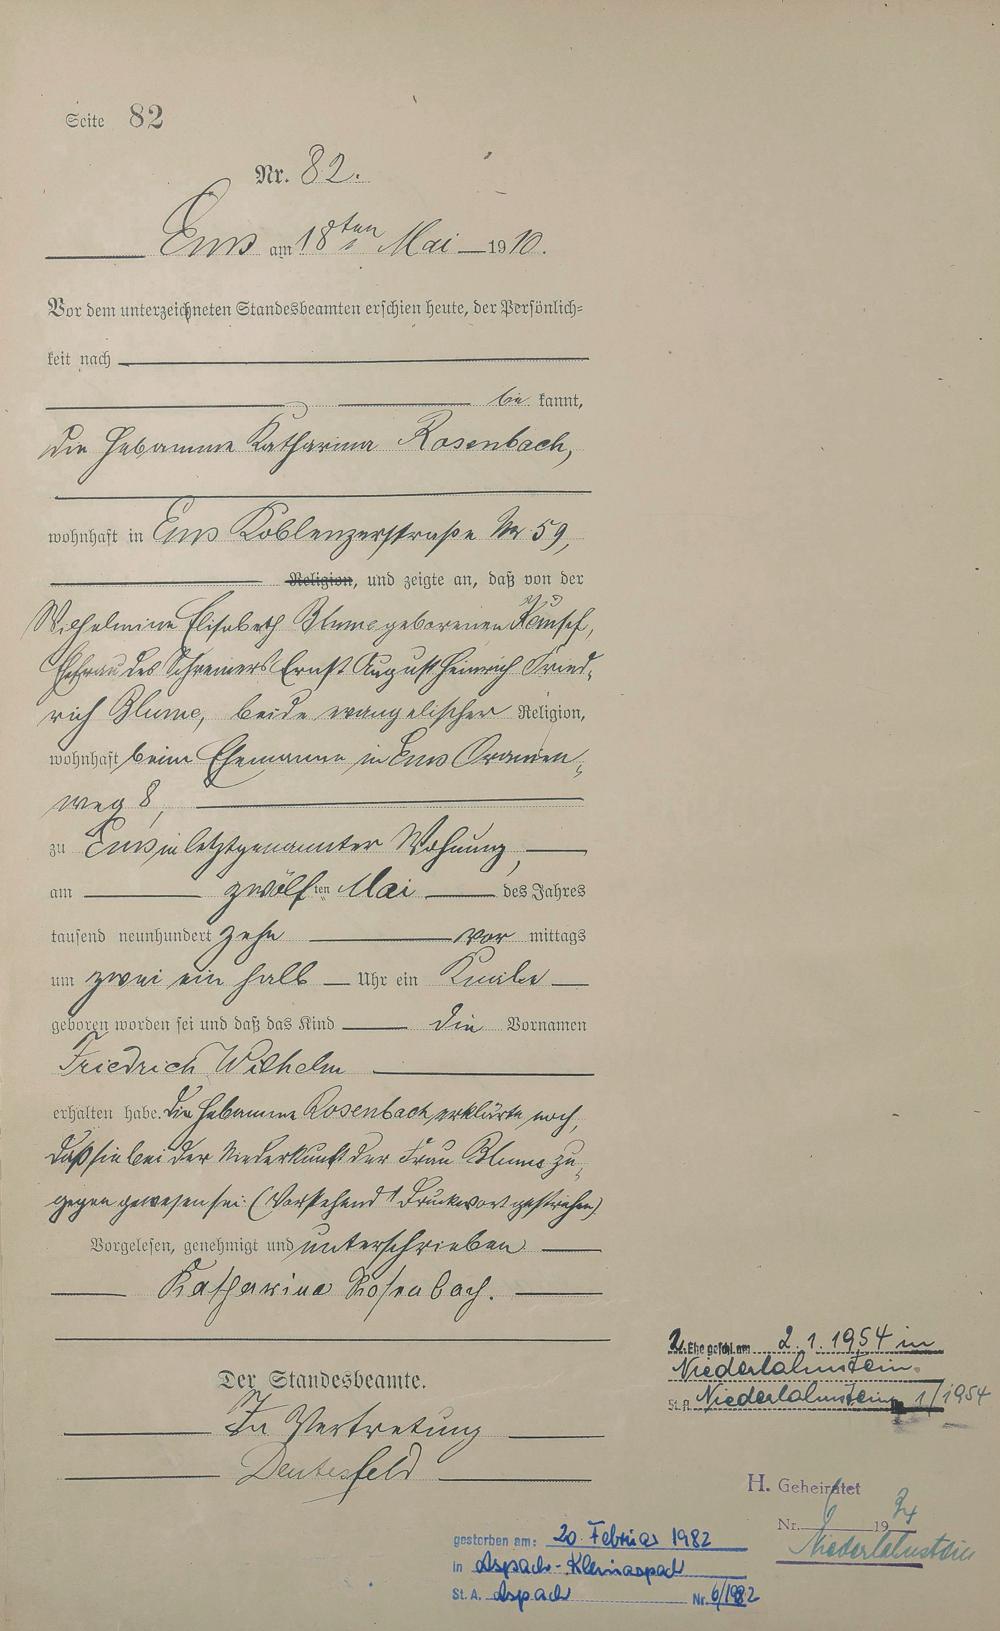 Seite 82
Nr. 82.
Ems am 18ten Mai 1910.
Vor dem unterzeichneten Standesbeamten erschien heute, der Persönlich-
keit nach
be kannt,
die Hebamme Katharina Rosenbach,
wohnhaft in Ems Koblenzerstraße Nr 59,
Religion, und zeigte an, daß von der
Wilhelmine Elisabeth Blume geborenen
Ehefrau des Schreiners Ernst August Heinrich Fried-
rich Blume, beide evangelischer Religion,
wohnhaft beim Ehemanne in Ems Oranien-
weg 8,
zu Ems in letztgenannter Wohnung,
am zwölften Mai des Jahres
tausend neunhundert zehn vor mittags
um zwei ein halb Uhr ein Knabe
geboren worden sei und daß das Kind die Vornamen
Friedrich Wilhelm
erhalten habe. Die Hebamme Rosenbach erklärte noch,
daß sie bei der Niederkunft der Frau Blume zu-
gegen gewesen sei. (Vorstehend 1 Druckwort gestrichen)
Vorgelesen, genehmigt und unterschrieben
Katharina Rosenbach.
Der Standesbeamte.
In Vertretung
2. Ehe geschl. am 2.1.1954 in
Niederlahnstein.
St. A. Niederlahnstein 1/1954
H. Geheiratet
Nr. 19 34
Niederlahnstein
gestorben am: 20. Februar 1982
in Aspach-Kleinaspach
St. A. Aspach Nr. 6/1982